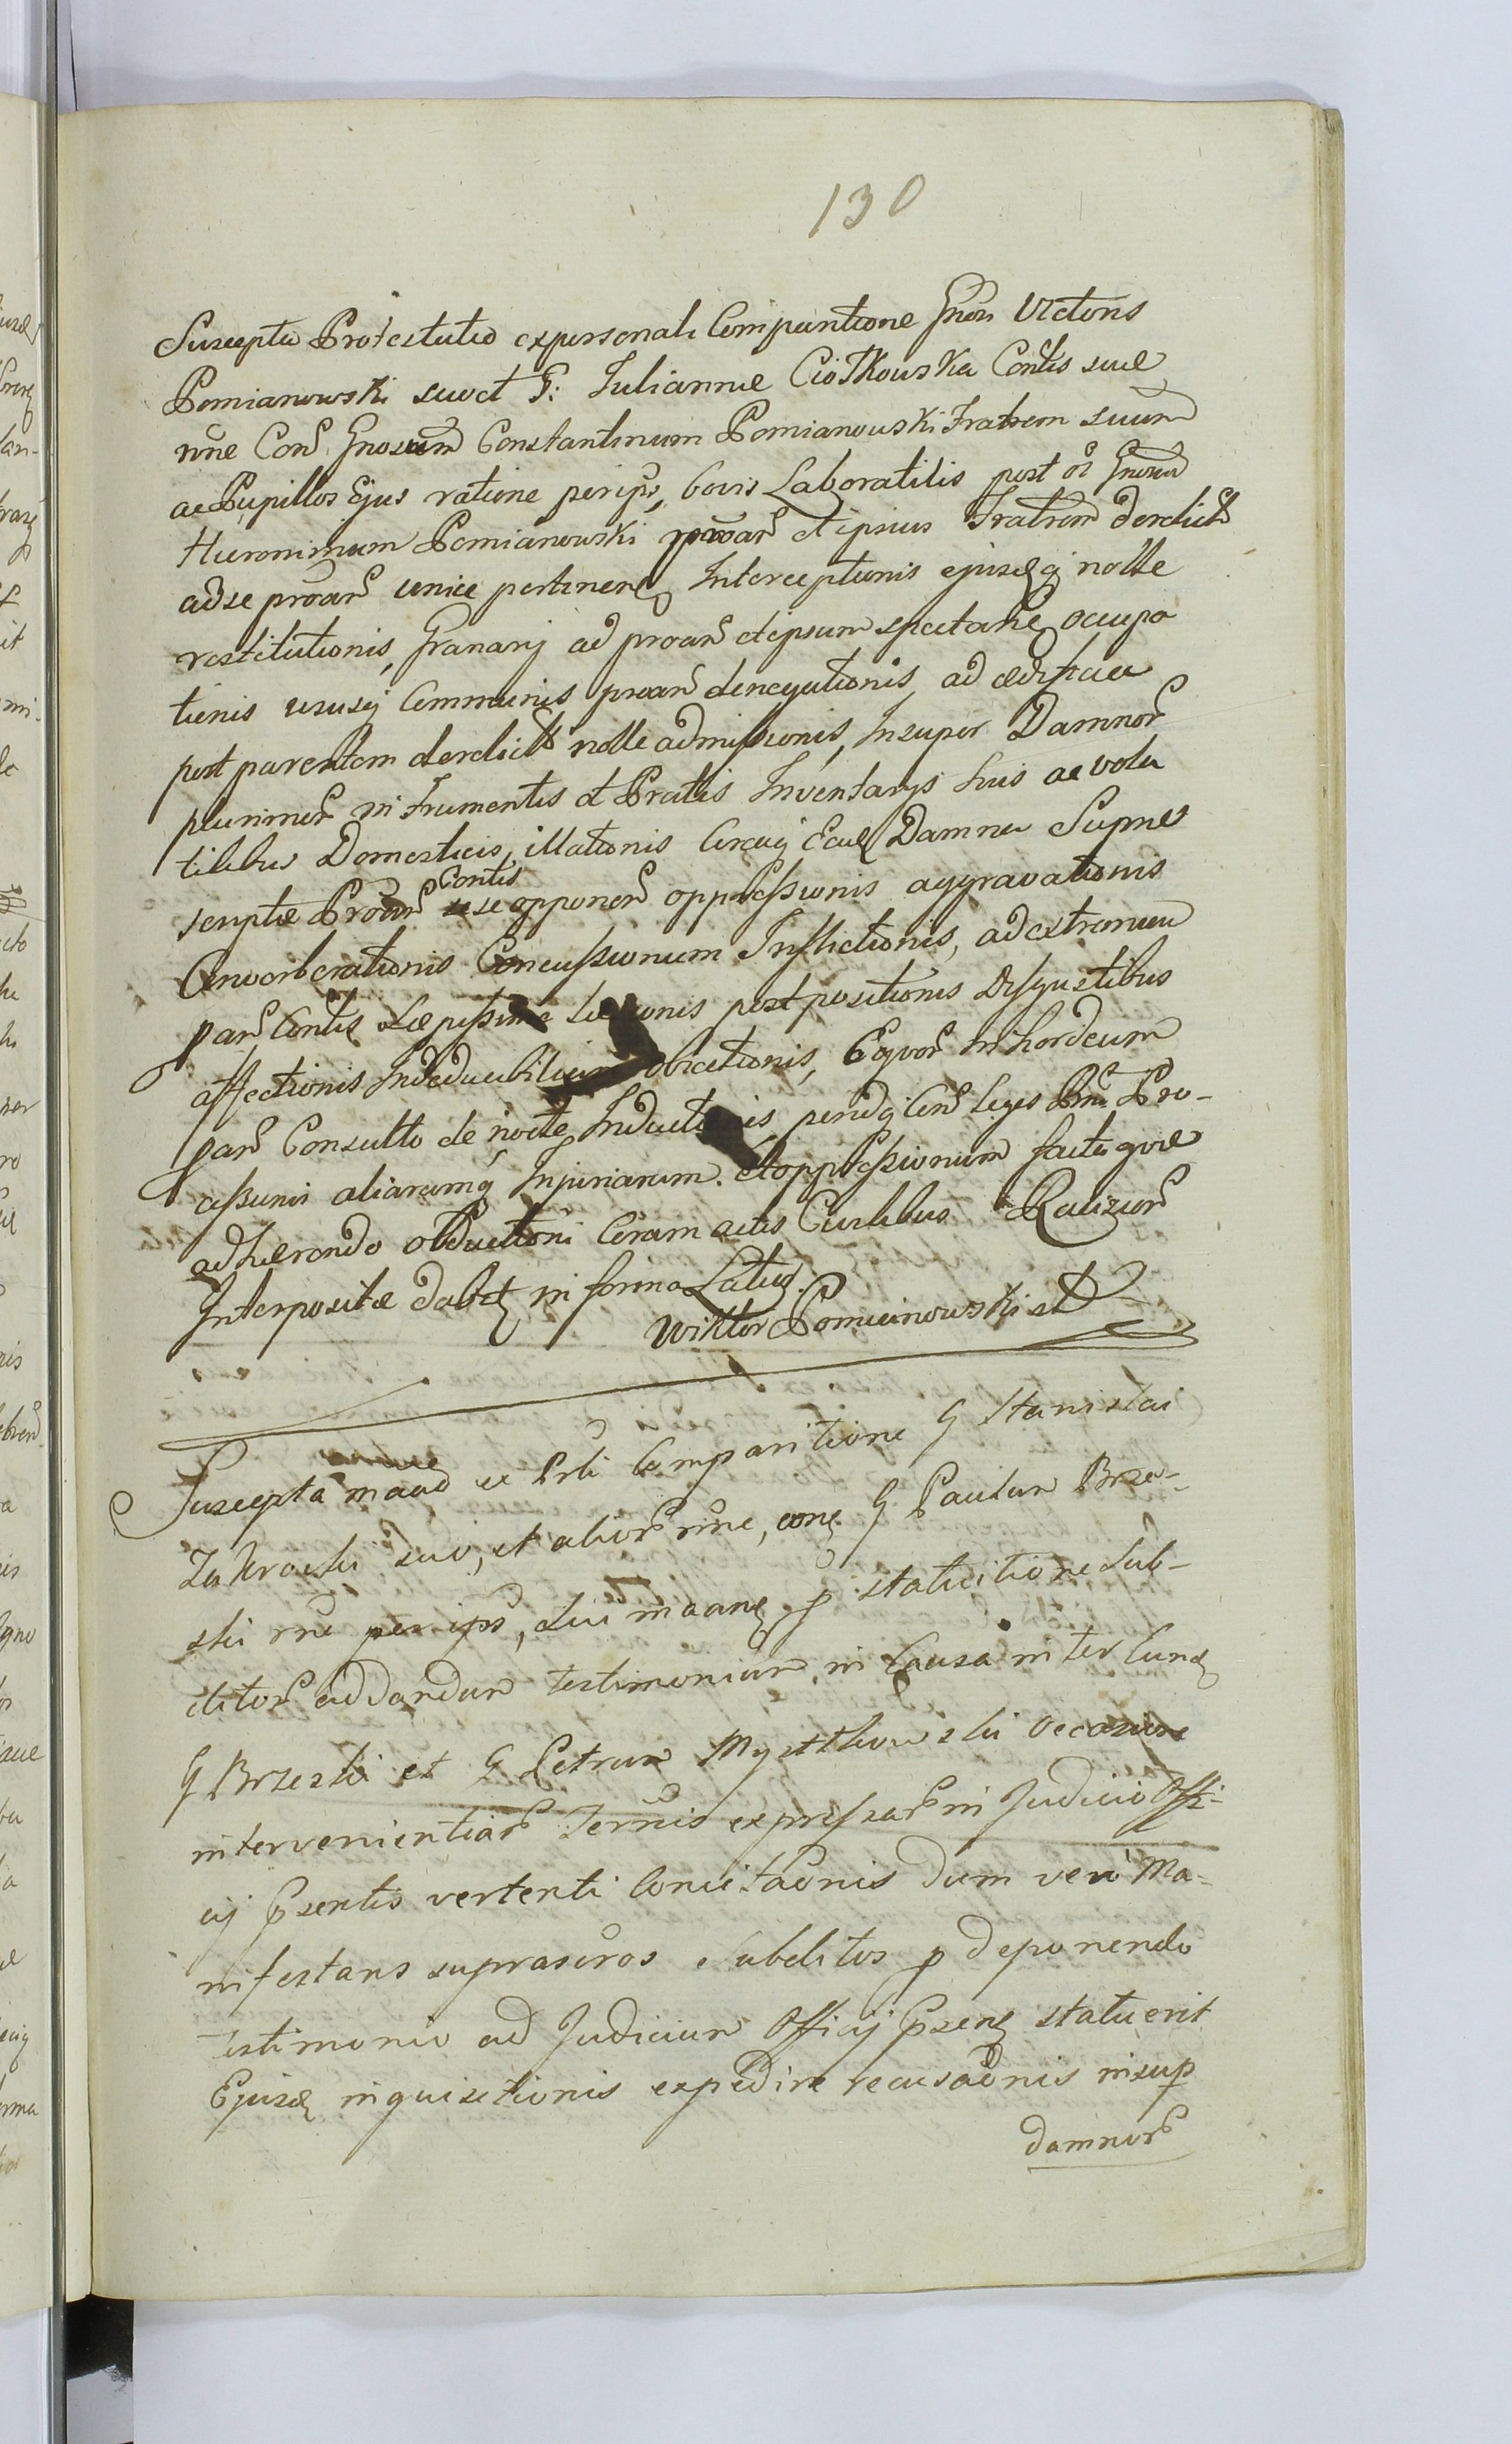 130
Suscepta Protestatio ex personali Comparitione Gnosi Victoris
Pomianowski suo et G: Juliannæ Ciotkowska Contis suæ
nne Cona Gnosum Constantinum Pomianowski Fratrem suum
ac Pupillos Ejus ratione per ips, bovis Laboratilis post ol Gnosum
Hieronimum Pomianowski proan et ipsius Fratrem derelicti
ad se proan unice pertinen, Interceptionis ejusdq nolle
restitutionis, Granarij ad proan et ipsum spectan occupa
tionis ususq Communis proan denegationis, ad ædificia
post parentem derelicta nolle admissionis, Insuper Damnor
plurimor in Frumentis et Pratis Inventarys suis ac vola
tilibus Domesticis, illationis Circaq Eade Damna Supra
scriptæ Proan Contis sese opponen oppressionis aggravationis
Converberationis Concussionum Inflictionis, ad extremum
pan Contis Sæpissime læsionis postpositionis Disgustibus
affectionis Indeducibilium obiectionis, Equor in hordeum
pan Consulto de nocte Inductionis, penaq Cen leges Pnti Pro-
cessus aliarumq Injuriarum et oppressionum facta quæ
adhærendo obductioni Coram actis Civilibus Radzien
Interpositæ dabit in forma Latius.
Wiktor Pomianowski st
Suscepta maand ex Prli Comparitione G Stanislai
Zakrocki suo, et alior nne, con G Paulum Brze-
ski rne per ips, Sui maan p statuitione Sub-
ditor ad dandum testimonium, in Causa inter eund
G Brzeski et G Petrum Mystkowski occasione
intervenientiar Ternis expressar in Judicio Offi-
cij Psentis vertenti Concitaonis Dum vero Ma-
nifestans suprascros Subditos p deponendo
testimonio ad Judicium Officij Psen statuerit
Ejusd inquisitionis expedire recusaonis insup
damnor